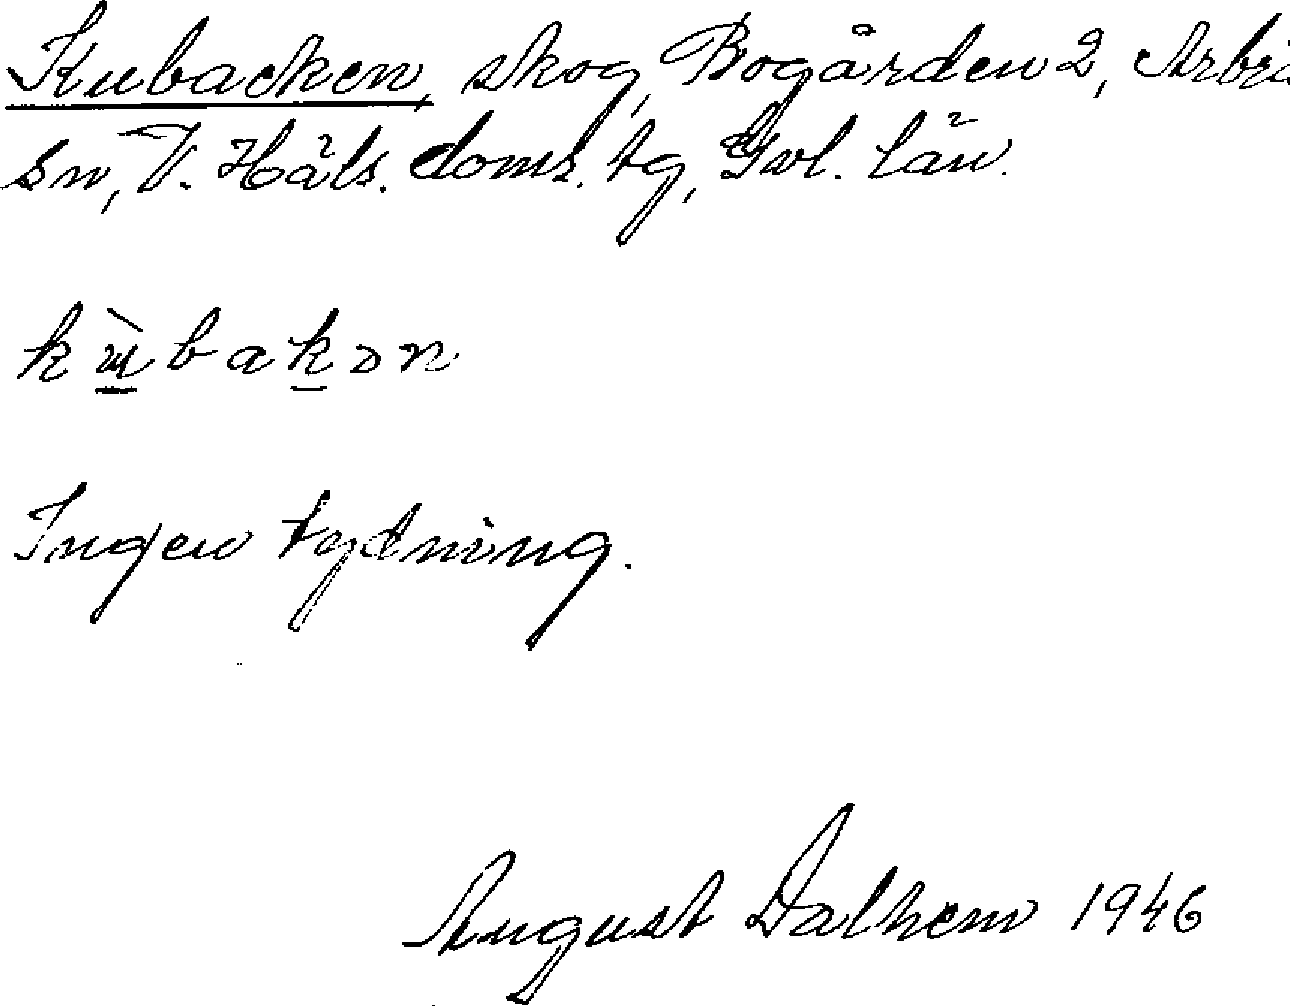 Kubacken, skog, Bogården 2, Arbrå
sn, V. Häls. doms. tg, Gvl. län.
kɯ̀bakən
Ingen tydning.
August Dalhem 1946